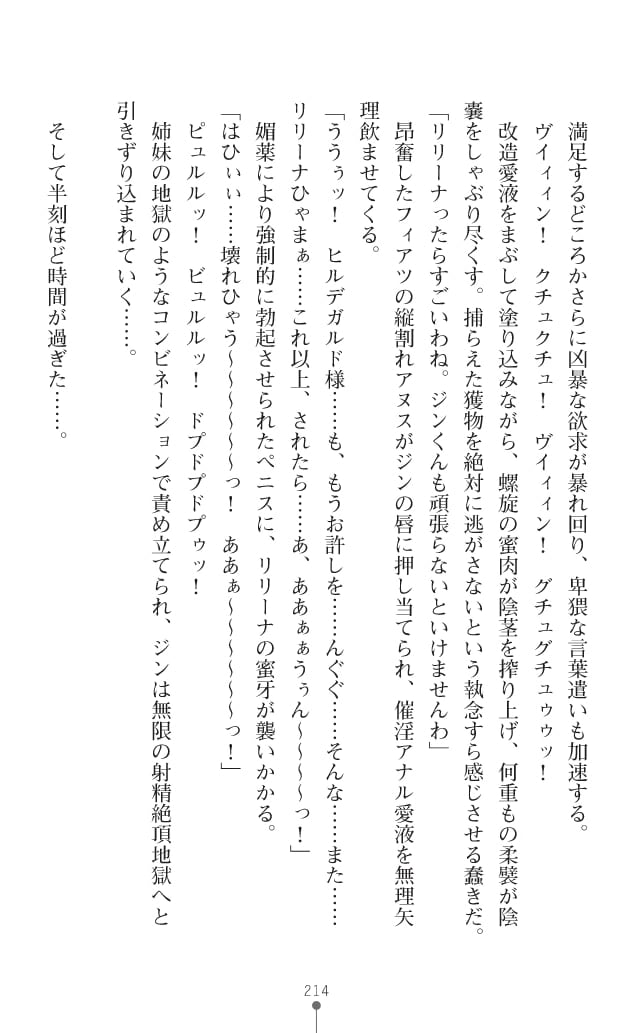 満足するどころかさらに凶暴な欲求が暴れ回り、卑猥な言葉遣いも加速する。
ヴイィィン！　クチュクチュ！　ヴイィィン！　グチュグチュゥゥッ！
改造愛液をまぶして塗り込みながら、螺旋の蜜肉が陰茎を搾り上げ、何重もの柔襞が陰
嚢をしゃぶり尽くす。捕らえた獲物を絶対に逃がさないという執念すら感じさせる蠢きだ。
「リリーナったらすごいわね。ジンくんも頑張らないといけませんわ」
昂奮したフィアツの縦割れアヌスがジンの唇に押し当てられ、催淫アナル愛液を無理矢
理飲ませてくる。
「ううぅッ！　ヒルデガルド様……も、もうお許しを……んぐぐ……そんな……また……
リリーナひゃまぁ……これ以上、されたら……あ、ああぁぁうぅん～～～～っ！」
媚薬により強制的に勃起させられたペニスに、リリーナの蜜牙が襲いかかる。
「はひぃぃ……壊れひゃう～～～～～～っ！　ああぁ～～～～～～っ！」
ピュルルッ！　ビュルルッ！　ドプドプドプゥッ！
姉妹の地獄のようなコンビネーションで責め立てられ、ジンは無限の射精絶頂地獄へと
引きずり込まれていく……。
そして半刻ほど時間が過ぎた……。
214